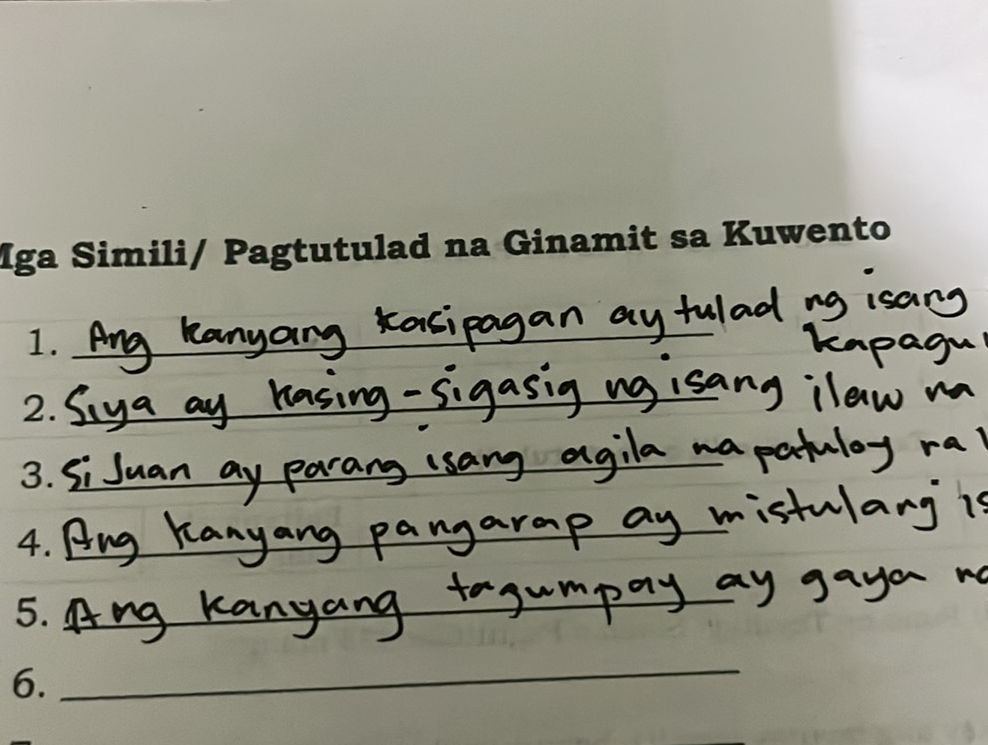 Mga Simili/ Pagtutulad na Ginamit sa Kuwento
1. Ang kanyang kasipagan ay tulad ng isang
kapagu
2. Siya ay kasing-sigasig ng isang ilaw na
3. Si Juan ay parang isang agila na patuloy na
4. Ang kanyang pangarap ay mistulang is
5. Ang kanyang tagumpay ay gaya
6.